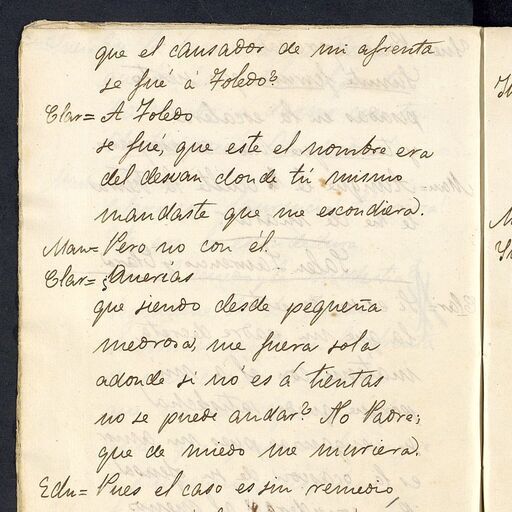 que el causador de mi afrenta
se fué á Toledo?
Clar= A Toledo
se fué, que este el nombre era
del desvan donde tú mismo
mandaste que me escondiera.
Man= Pero no con él.
Clar= ¿Querías
que siendo desde pequeña
medrosa, me fuera sola
adonde si no es á tientas
no se puede andar? No Padre;
que de miedo me muriera.
Edu= Pues el caso es sin remedio